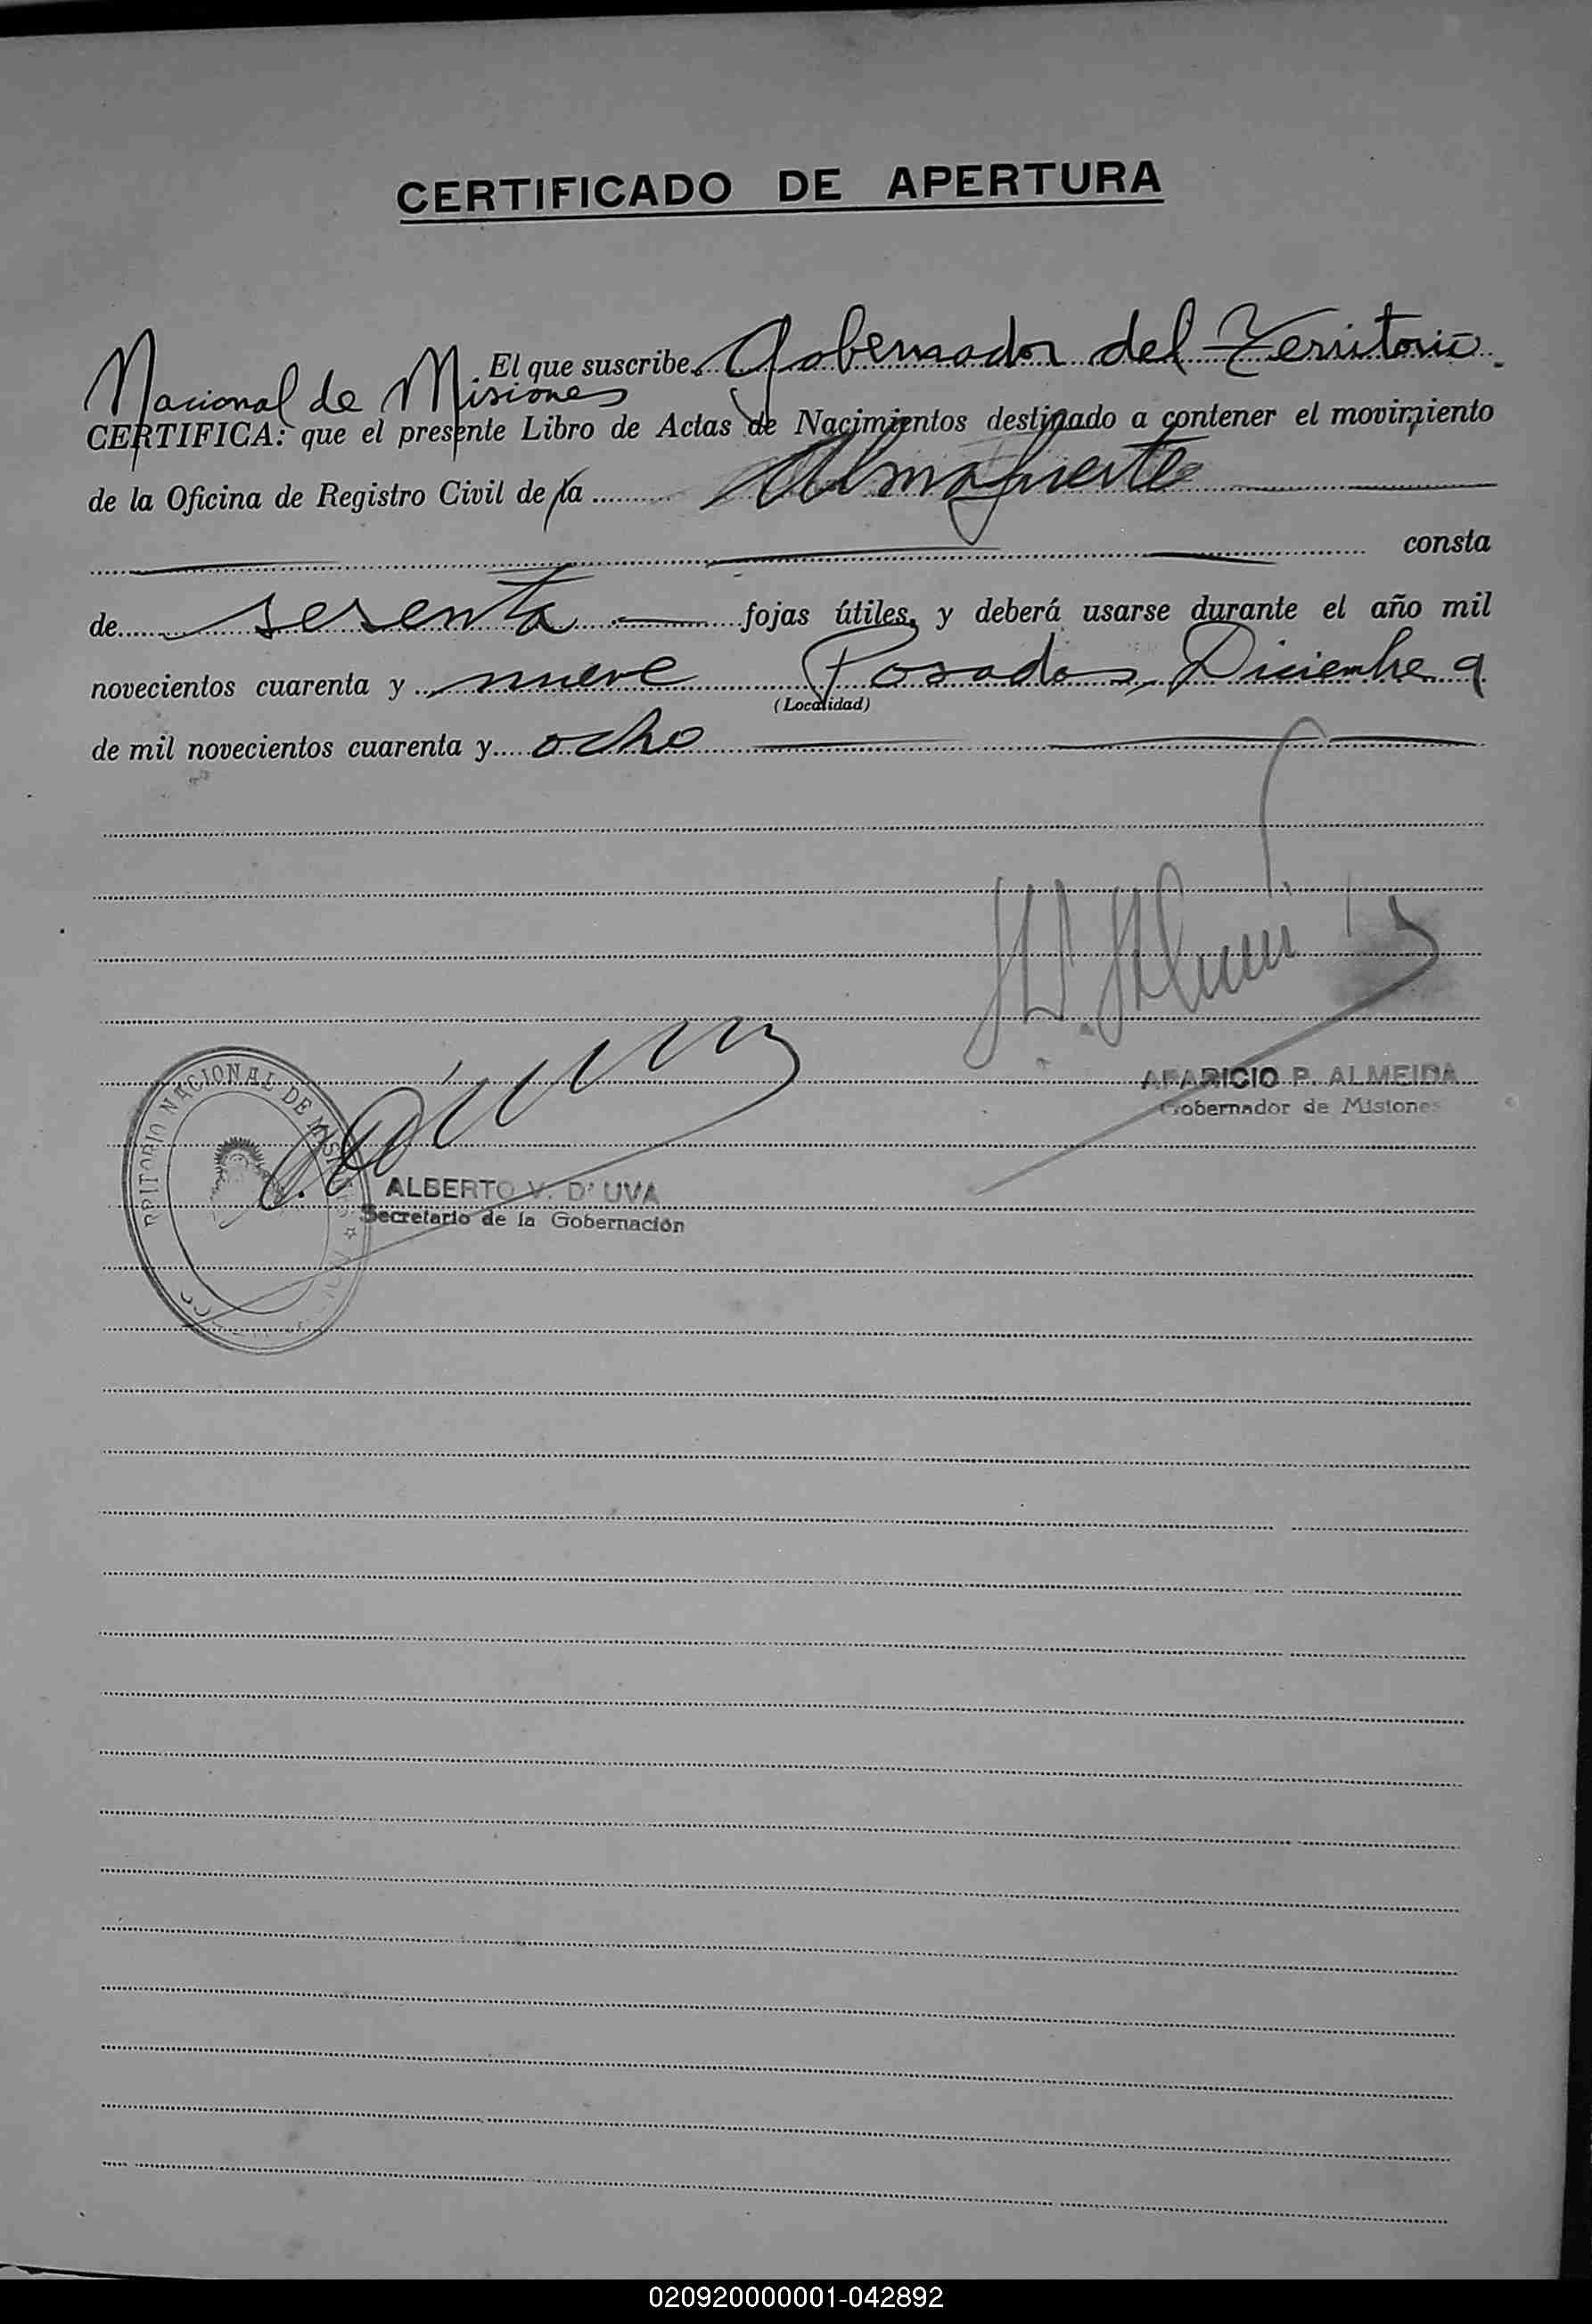 CERTIFICADO DE APERTURA
El que suscribe Gobernador del Territorio
Nacional de Misiones
CERTIFICA: que el presente Libro de Actas de Nacimientos destinado a contener el movimiento
de la Oficina de Registro Civil de la Almafuerte
consta
de sesenta fojas útiles, y deberá usarse durante el año mil
novecientos cuarenta y nueve Posadas, Diciembre 9
(Localidad)
de mil novecientos cuarenta y ocho
APARICIO P. ALMEIDA
Gobernador de Misiones
NACIONAL DE MISIONES
ALBERTO V. D'UVA
Secretario de la Gobernación
020920000001-042892